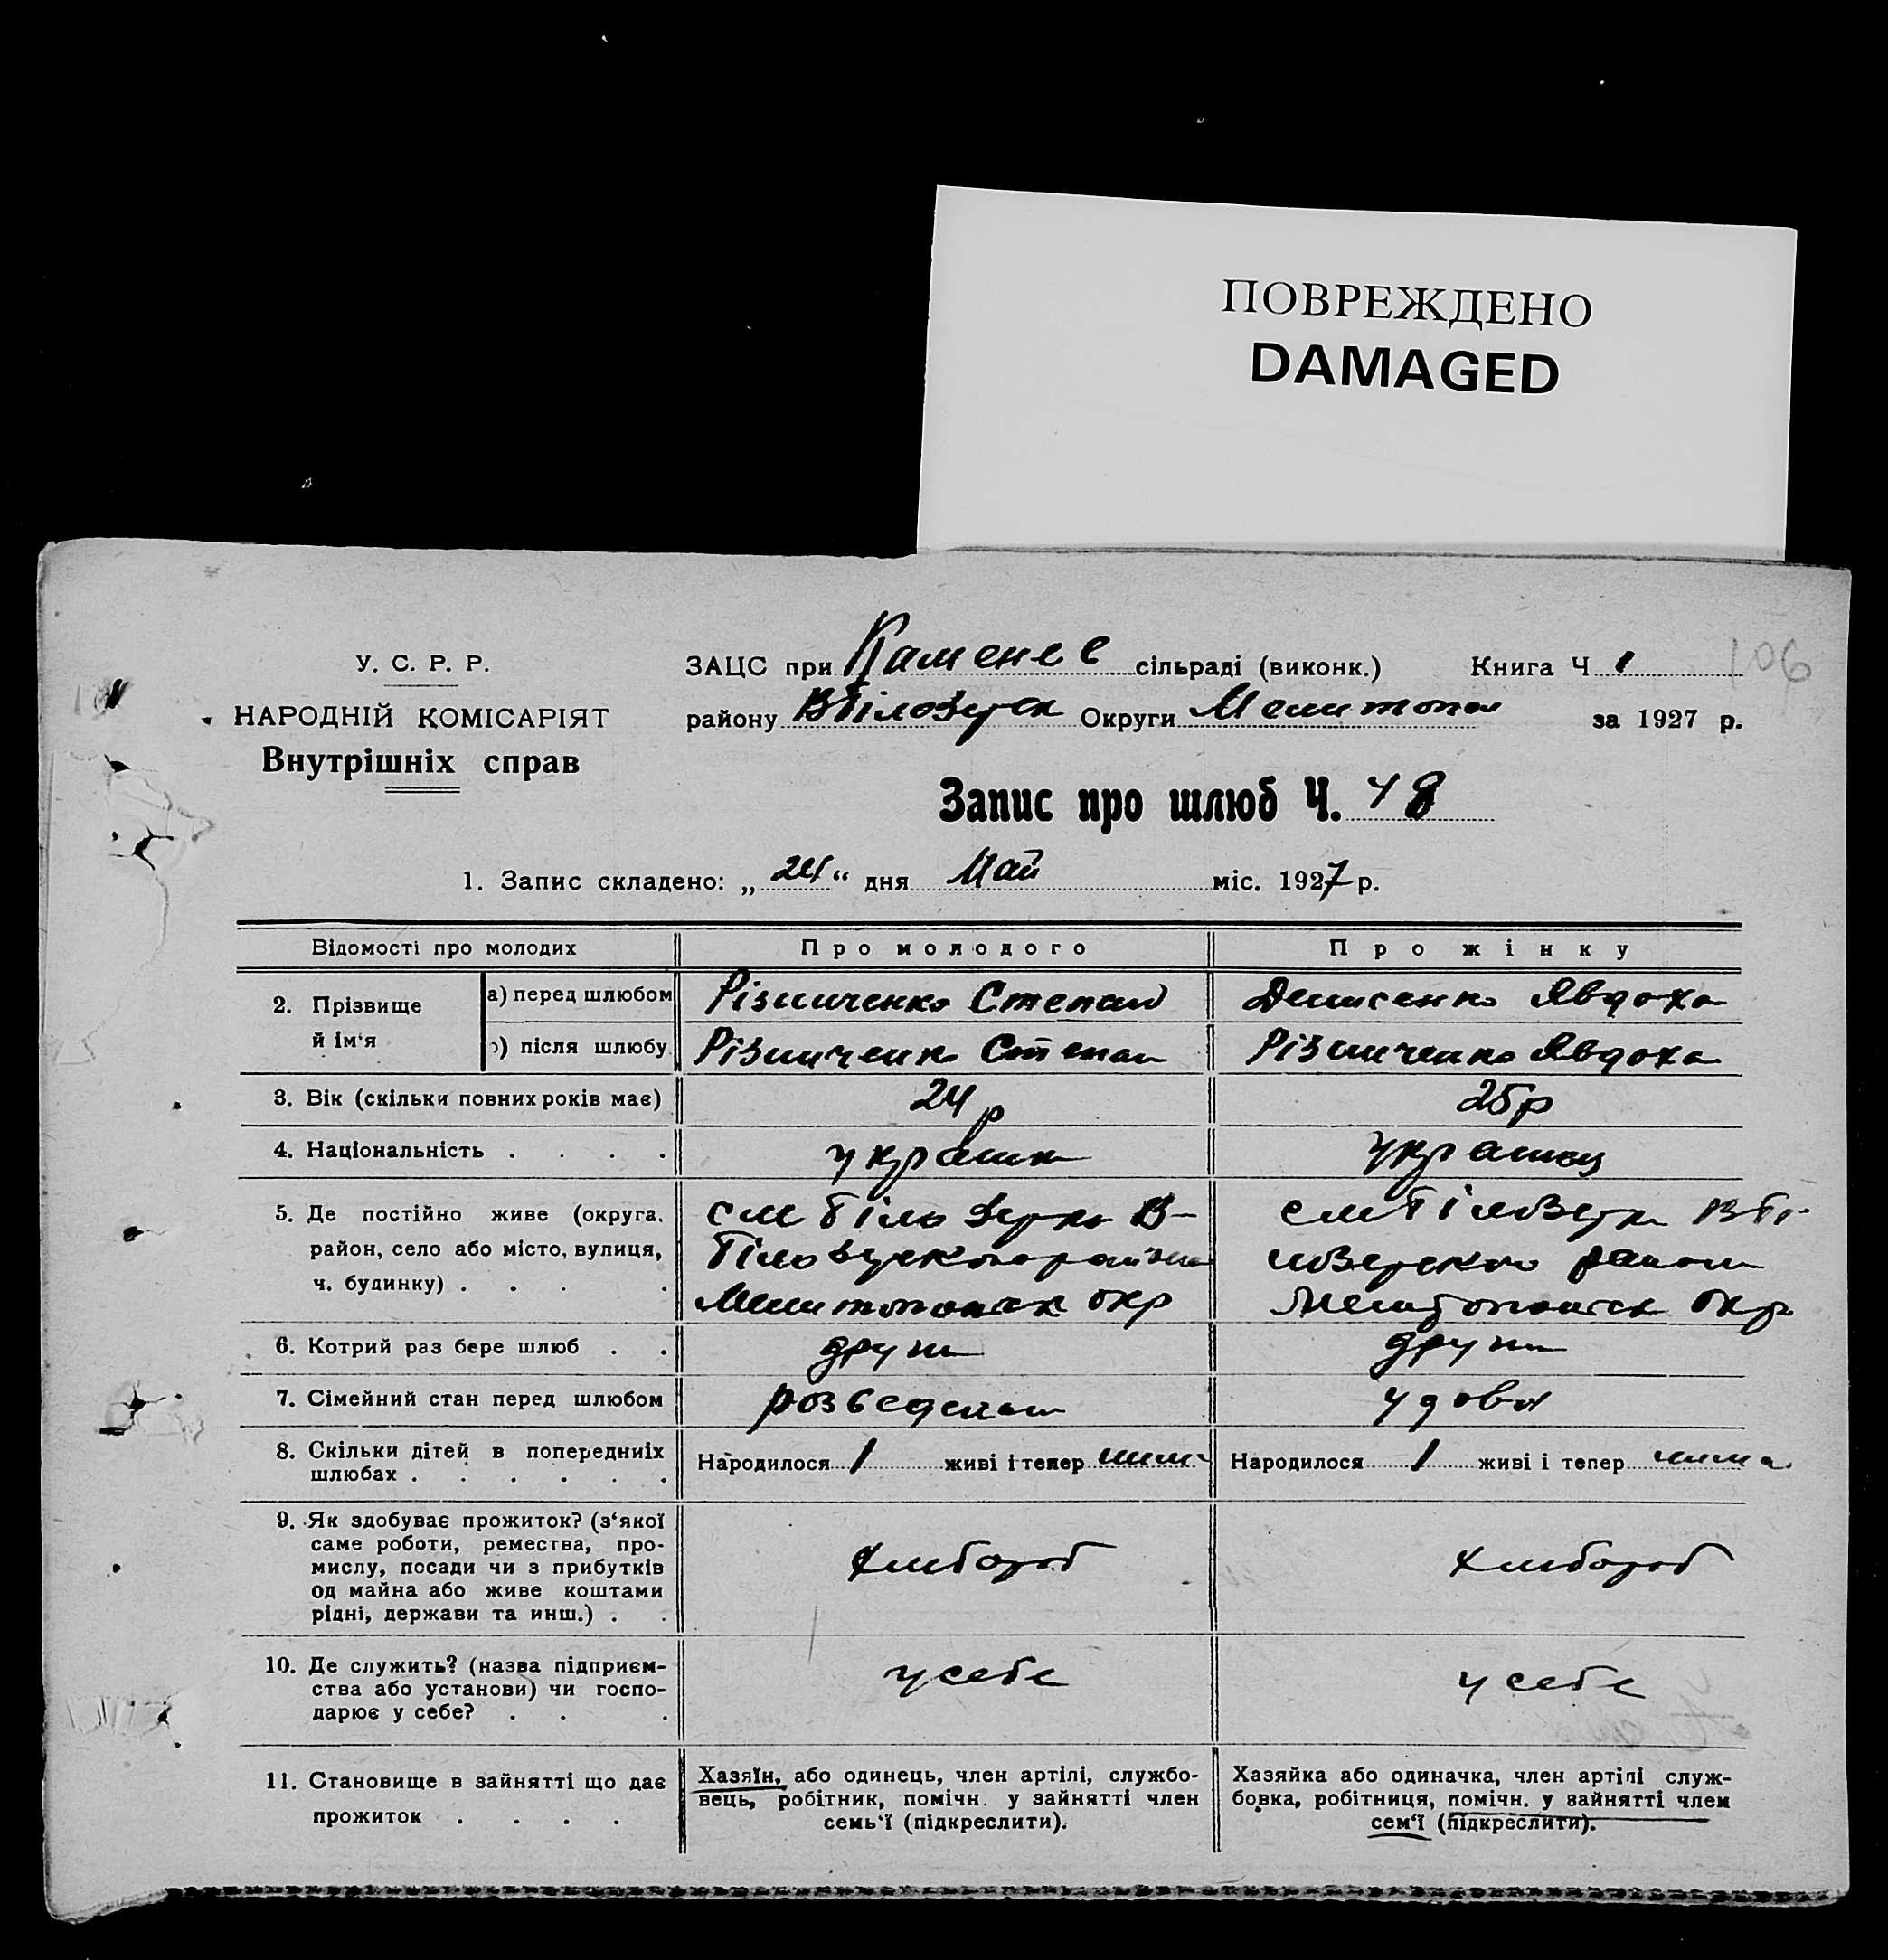 ПОВРЕЖДЕНО
DAMAGED
106
У. С. Р. Р.
НАРОДНІЙ КОМІСАРІЯТ
Внутрішніх справ
ЗАЦС при Каменес сільраді (виконк.) Книга Ч 1
району ВБілозерск Округи Мелитопол за 1927 р.
Запис про шлюб Ч. 48
1. Запис складено: „24“ дня Май міс. 1927 р.
Відомості про молодих Про молодого Про жінку
2. Прізвище й ім‘я
а) перед шлюбом Різниченко Степан Денисенко Явдоха
б) після шлюбу Різниченко Степан Різниченко Явдоха
3. Вік (скільки повних років має) 24 р 25 р
4. Національність . . . . україн україн
5. Де постійно живе (округа,
район, село або місто, вулиця,
ч. будинку) . . . .
Білозерка В-
Білозерского района
Мелитопольск окр
Білозерка ВБі-
лозерского район
Мелитопольск Окр
6. Котрий раз бере шлюб . . други други
7. Сімейний стан перед шлюбом розведений удова
8. Скільки дітей в попередниіх
шлюбах . . . . . .
Народилося 1 живі і тепер нима
Народилося 1 живі і тепер нима
9. Як здобуває прожиток? (з‘якої
саме роботи, ремества, про-
мислу, посади чи з прибутків
од майна або живе коштами
рідні, держави та инш.) . .
хлибороб хлибороб
10. Де служить? (назва підприєм-
ства або установи) чи госпо-
дарює у себе? . . .
у себе у себе
11. Становище в зайнятті що дає
прожиток . . . .
Хазяїн, або одинець, член артілі, службо-
вець, робітник, помічн. у зайнятті член
семь‘ї (підкреслити).
Хазяйка або одиначка, член артілі служ-
бовка, робітниця, помічн. у зайнятті член
сем‘ї (підкреслити).